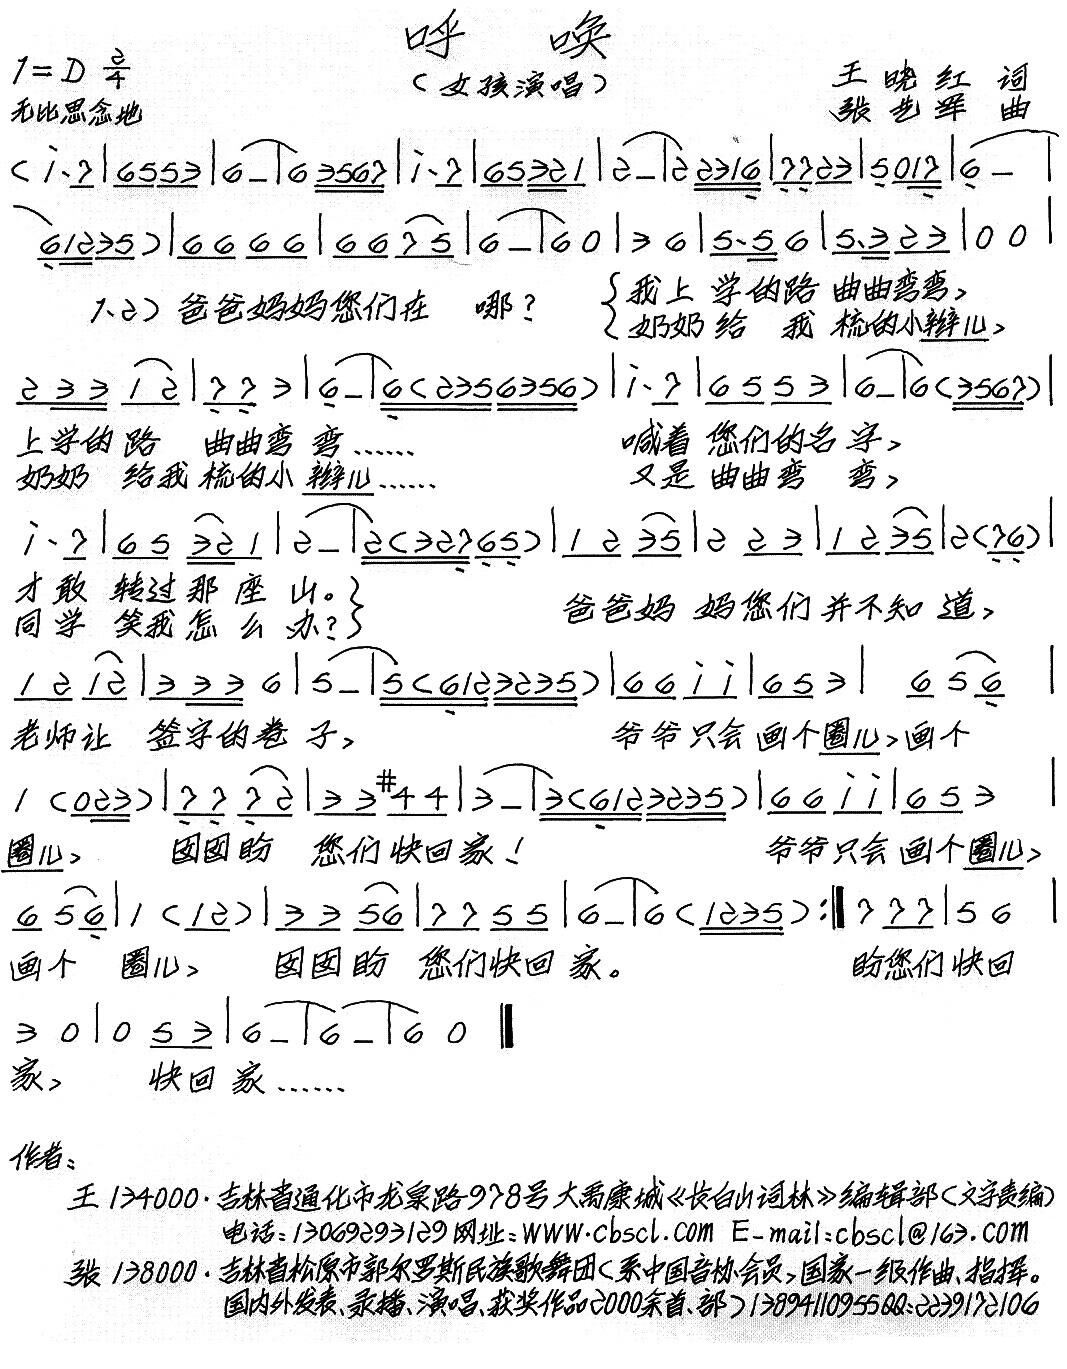 呼 唤
1=D 2/4
(女孩演唱)
王晓红 词
无比思念地
张艺军 曲
(i·7|6553|6－|63567|i·7|65321|2－|222316|7723|5017|6－|
61235)|6666|6675|6－|60|36|5·56|5·323|00|
1.2)爸爸妈妈您们在 哪? {我上学的路曲曲弯弯,
{奶奶给 我 梳的小辫儿,
23312|773|6－|6(2356356)|i·7|6553|6－|6(3567)|
上学的路 曲曲弯弯…… 喊着您们的名字,
奶奶 给我梳的小辫儿…… 又是曲曲弯 弯,
i·7|65321|2－|2(32765)|1235|223|1235|2(76)|
才敢 转过那座山。} 爸爸妈妈您们并不知道,
同学 笑我怎么办?} 
1212|3336|5－|5(6123235)|66ii|653|656|
老师让 签字的卷子, 爷爷只会画个圈儿,画个
1(023)|7772|33#44|3－|3(6123235)|66ii|653|
圈儿, 囡囡盼 您们快回家! 爷爷只会画个圈儿,
656|1(12)|3356|7755|6－|6(1235):‖777|56|
画个 圈儿, 囡囡盼 您们快回家。 盼您们快回
30|053|6－|6－|60‖
家, 快回家……
作者:
王 134000·吉林省通化市龙泉路978号大禹康城《长白山词林》编辑部(文字责编)
电话:13069293129网址:www.cbscl.com E-mail:cbscl@163.com
张 138000·吉林省松原市郭尔罗斯民族歌舞团(系中国音协会员,国家一级作曲、指挥。
国内外发表、录播、演唱、获奖作品2000余首、部)13894110955QQ:2239172106